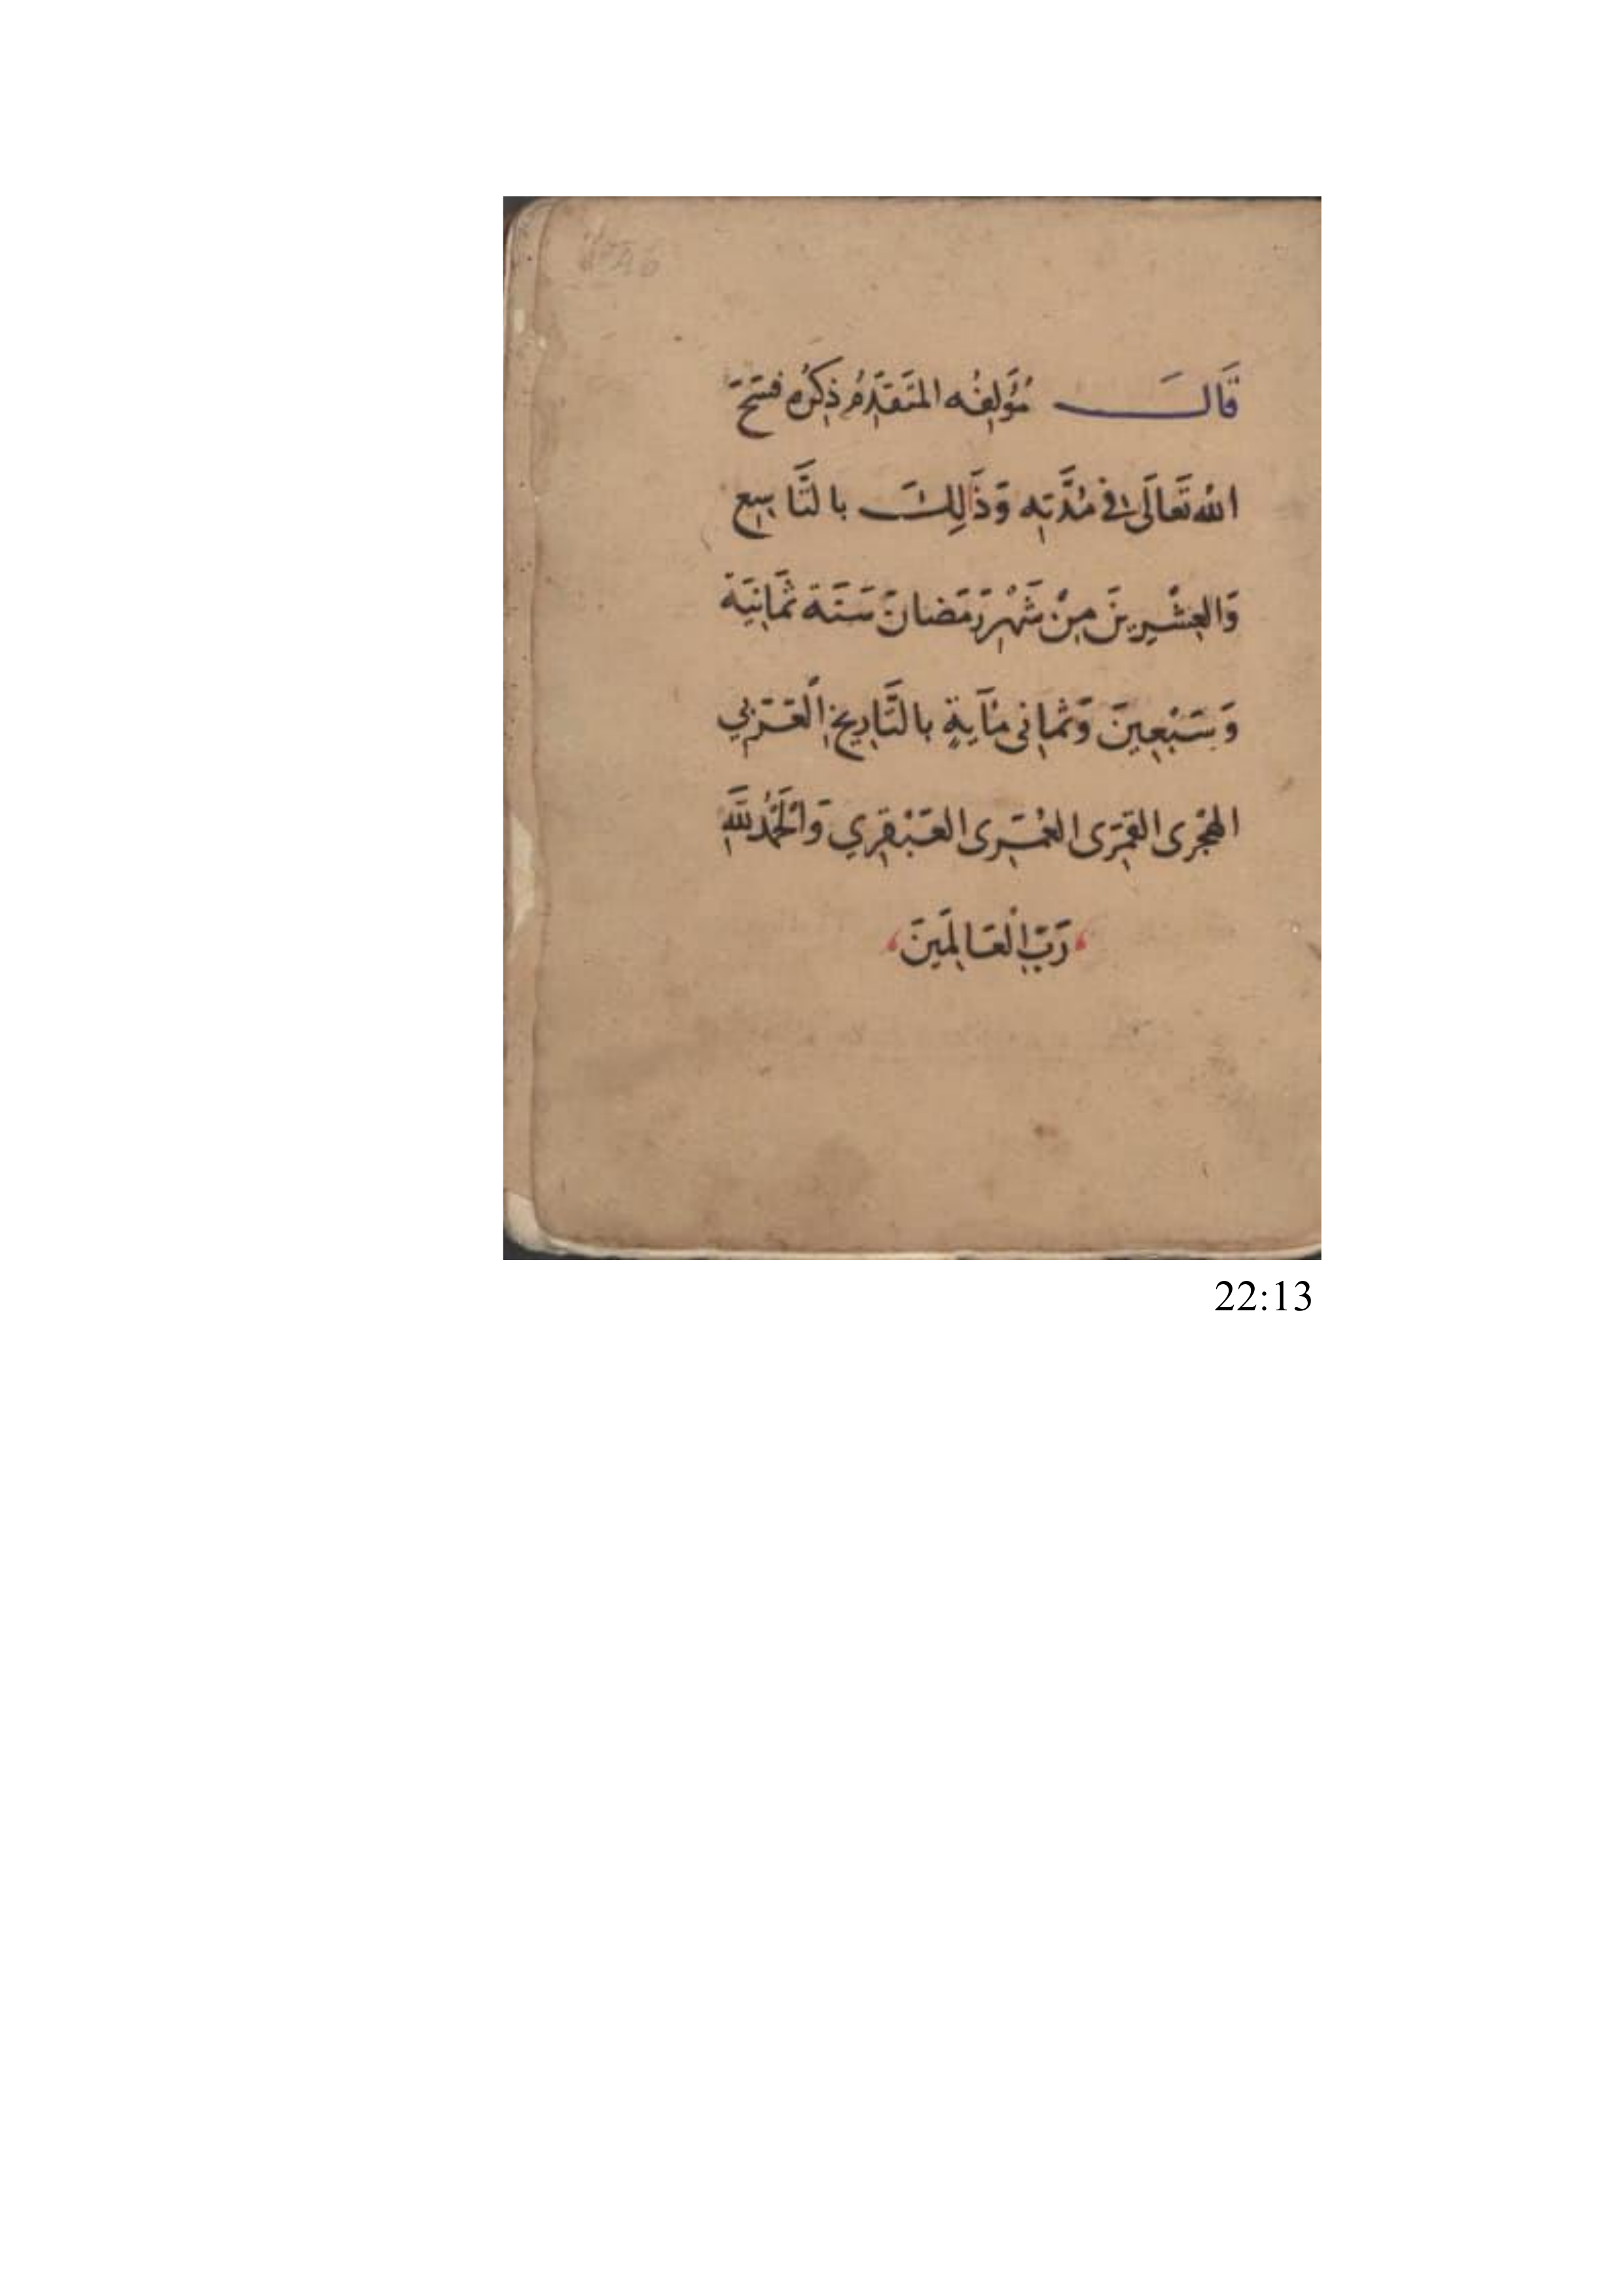 قَالَ مُؤَلِفُه المتَقَدِّمُ ذِكْرُهِ فَسَحَ
الله تَعَالَى فِى مُدَّتِهِ وَذَٰلِكَ بالتَّاسِعِ
وَالعِشْرِينَ مِنْ شَهْرِ رَمَضانَ سَنَة ثَمَانِيَة
وَسَبْعِينَ وَثمانى مْآيةٍ بالتَّارِيخِ الْعَرَبِي
الهِجْرِى القَمَرِى العُمَرِى العَبْقَرِي وَالْحَمْدُ لِلَّهِ
رَبِّ الْعَالَمِينَ
22:13